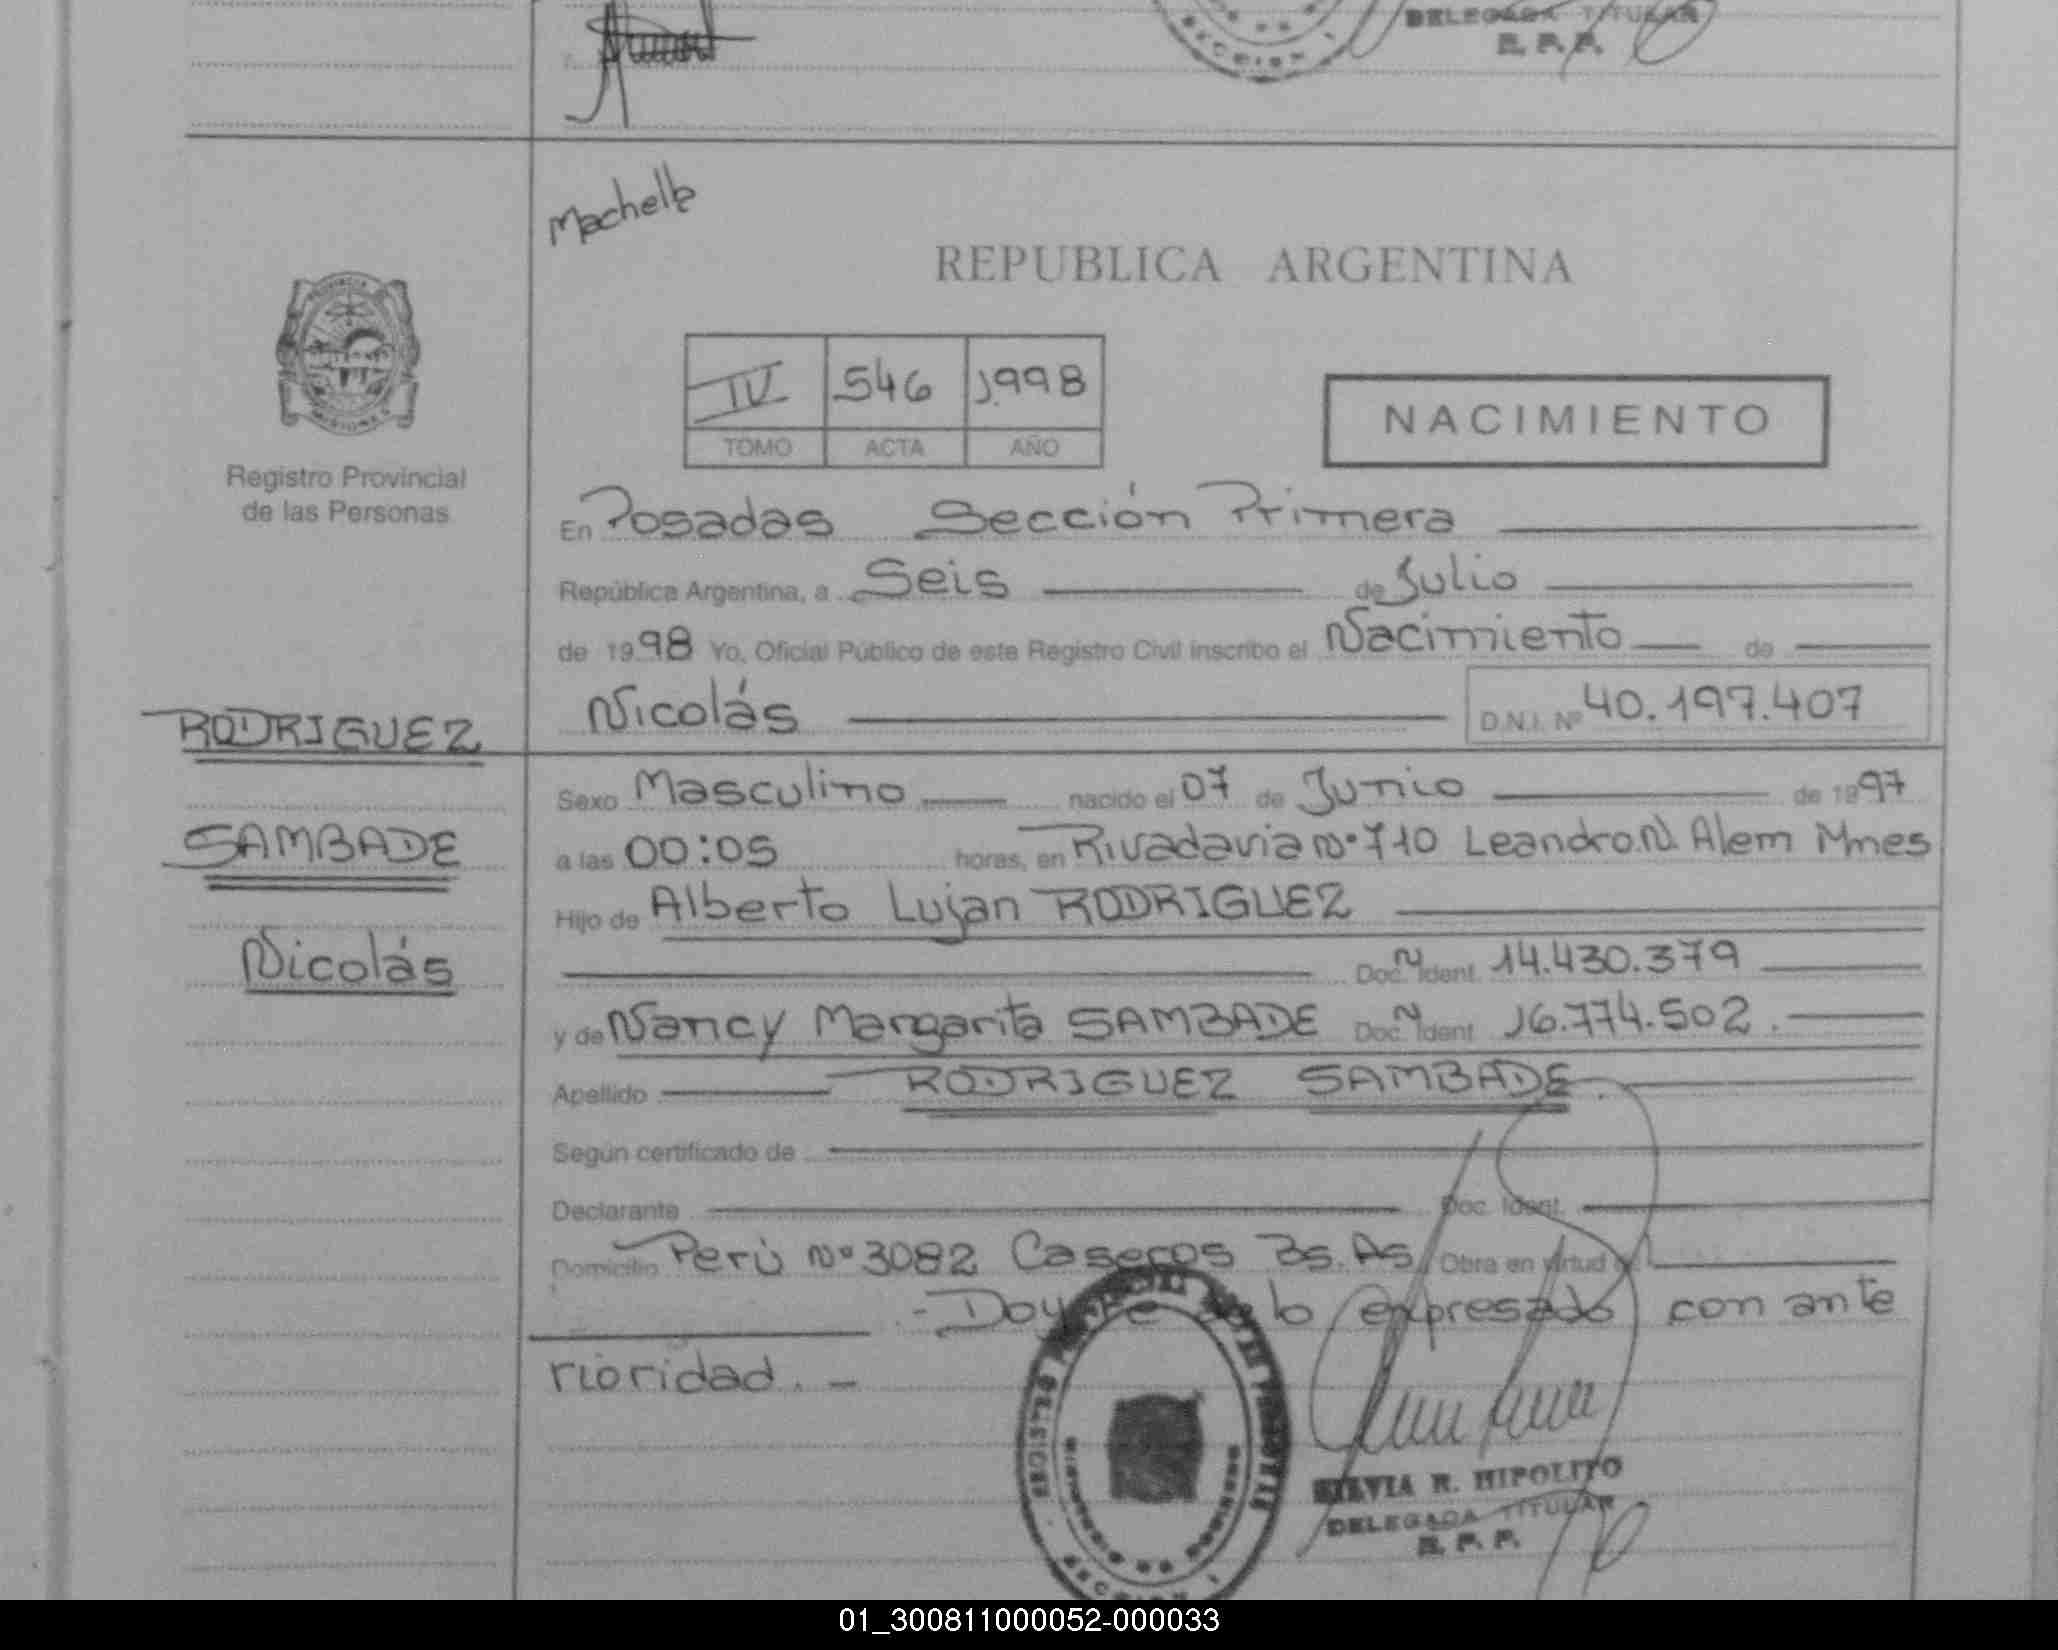 DELEGADA TITULAR
R. P. P.
SECCION 1
Machelle
REPUBLICA ARGENTINA
PROVINCIA DE
MISIONES
IV 546 1.998
TOMO ACTA AÑO
NACIMIENTO
Registro Provincial
de las Personas
En Posadas Sección Primera
República Argentina, a Seis de Julio
de 1998 Yo, Oficial Público de este Registro Civil inscribo el Nacimiento de
Nicolás D.N.I. Nº 40.197.407
RODRIGUEZ
Sexo Masculino nacido el 07 de Junio de 1997
SAMBADE
a las 00:05 horas, en Rivadavia Nº 710 Leandro N. Alem Mnes
Hijo de Alberto Lujan RODRIGUEZ
Nicolás
Doc. N Ident. 14.430.379
y de Nancy Margarita SAMBADE Doc. N Ident. 16.774.502.
Apellido RODRIGUEZ SAMBADE.
Según certificado de
Declarante Doc. Ident.
Domicilio Perú Nº 3082 Caseros Bs. As. Obra en virtud
.-Doy Fe de lo expresado con ante
rioridad. -
REGISTRO PROVINCIAL DE LAS PERSONAS
SECCION 1
SILVIA R. HIPOLITO
DELEGADA TITULAR
R. P. P.
01_300811000052-000033